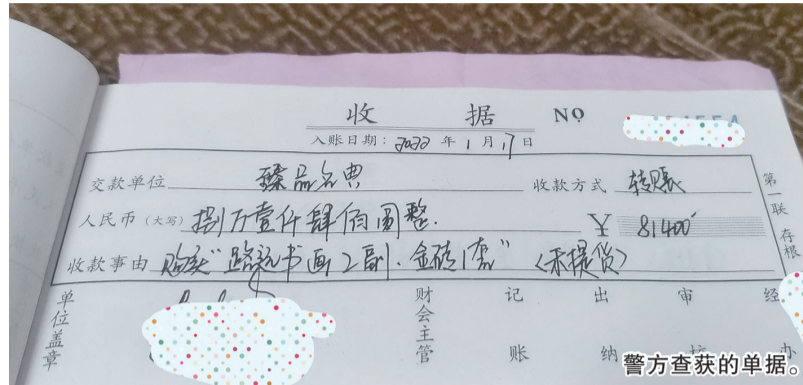 收 据 NO
入账日期：2022 年 1 月 17 日
交款单位 臻品名典 收款方式 转账
人民币（大写） 捌万壹仟肆佰圆整. ¥ 81400
收款事由 购买"路远书画2副.金砖1套"（未提货）
第一联 存根
单位盖章 财会主管 记账 出纳 审核 经办
警方查获的单据。